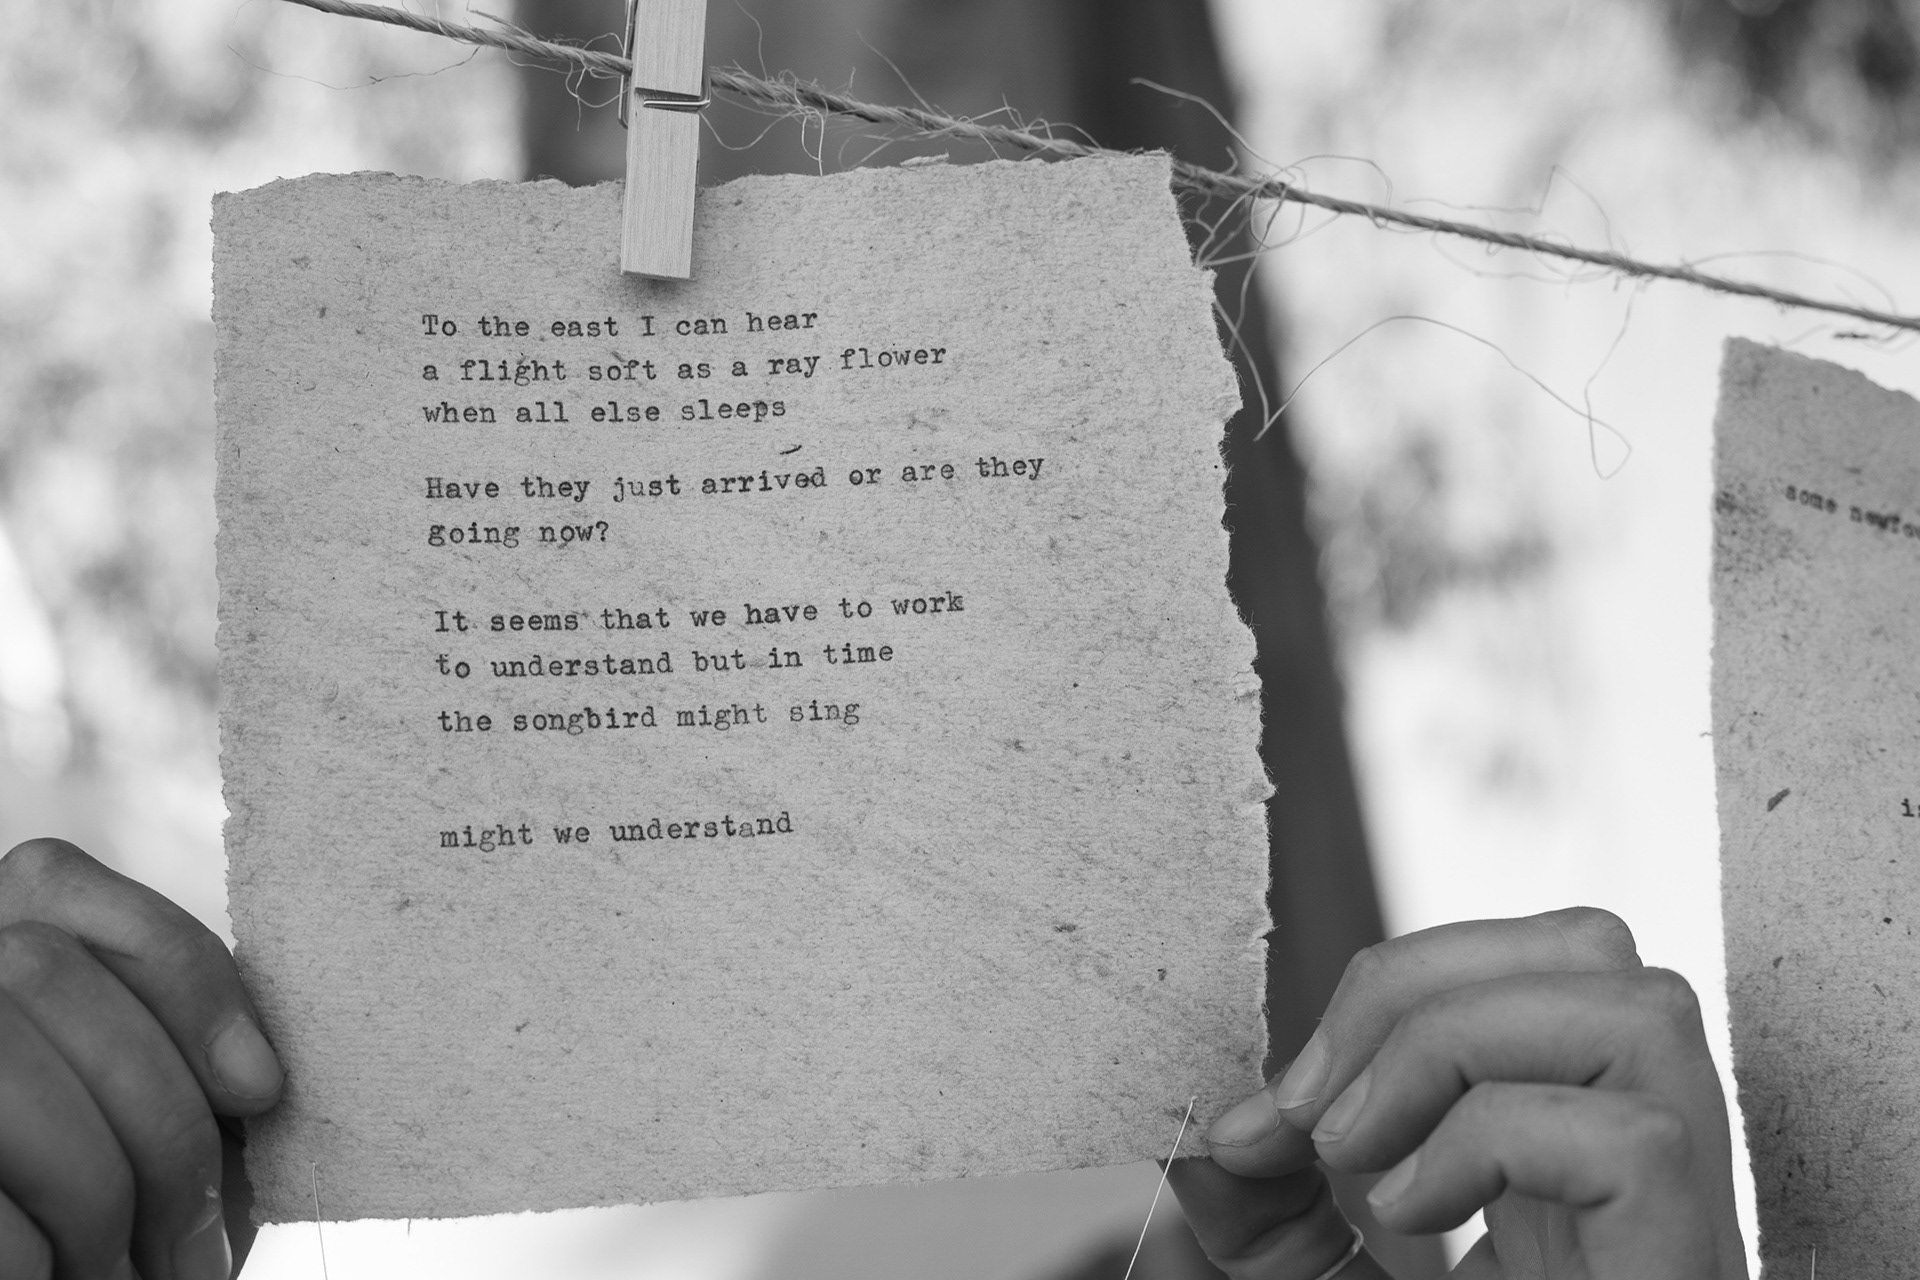 To the east I can hear
a flight soft as a ray flower
when all else sleeps
Have they just arrived or are they
going now?
It seems that we have to work
to understand but in time
the songbird might sing
might we understand
some